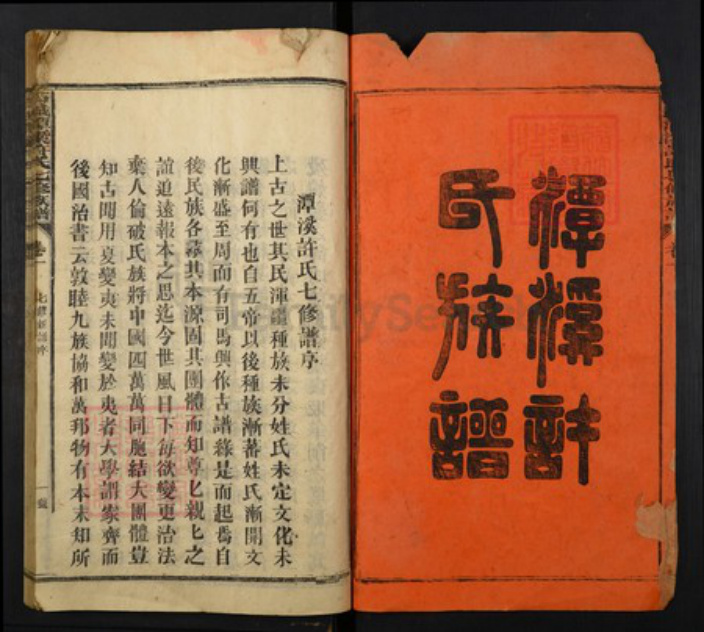 潭溪許
氏族譜
潭溪許氏七修譜序
上古之世其民渾噩種族未分姓氏未定文化未
興譜何有也自五帝以後種族漸蕃姓氏漸開文
化漸盛至周而有司馬興作古譜緣是而起為自
後民族各尋其本源固其團體而知尊匕親匕之
誼追遠報本之思迄今世風日下每欲變更治法
棄人倫破氏族將中國四萬萬同胞結大團體豈
知古聞用夏變夷未聞變於夷者大學謂家齊而
後國治書云敦睦九族協和萬邦物有本末知所
七修新譜序
一